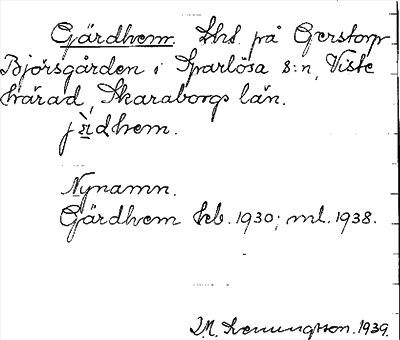 Gärdhem. Lhs. på Gerstorp
Björsgården i Sparlösa s:n, Viste
härad, Skaraborgs län.
Nynamn.
Gärdhem keb. 1930; ml. 1938.
1939.